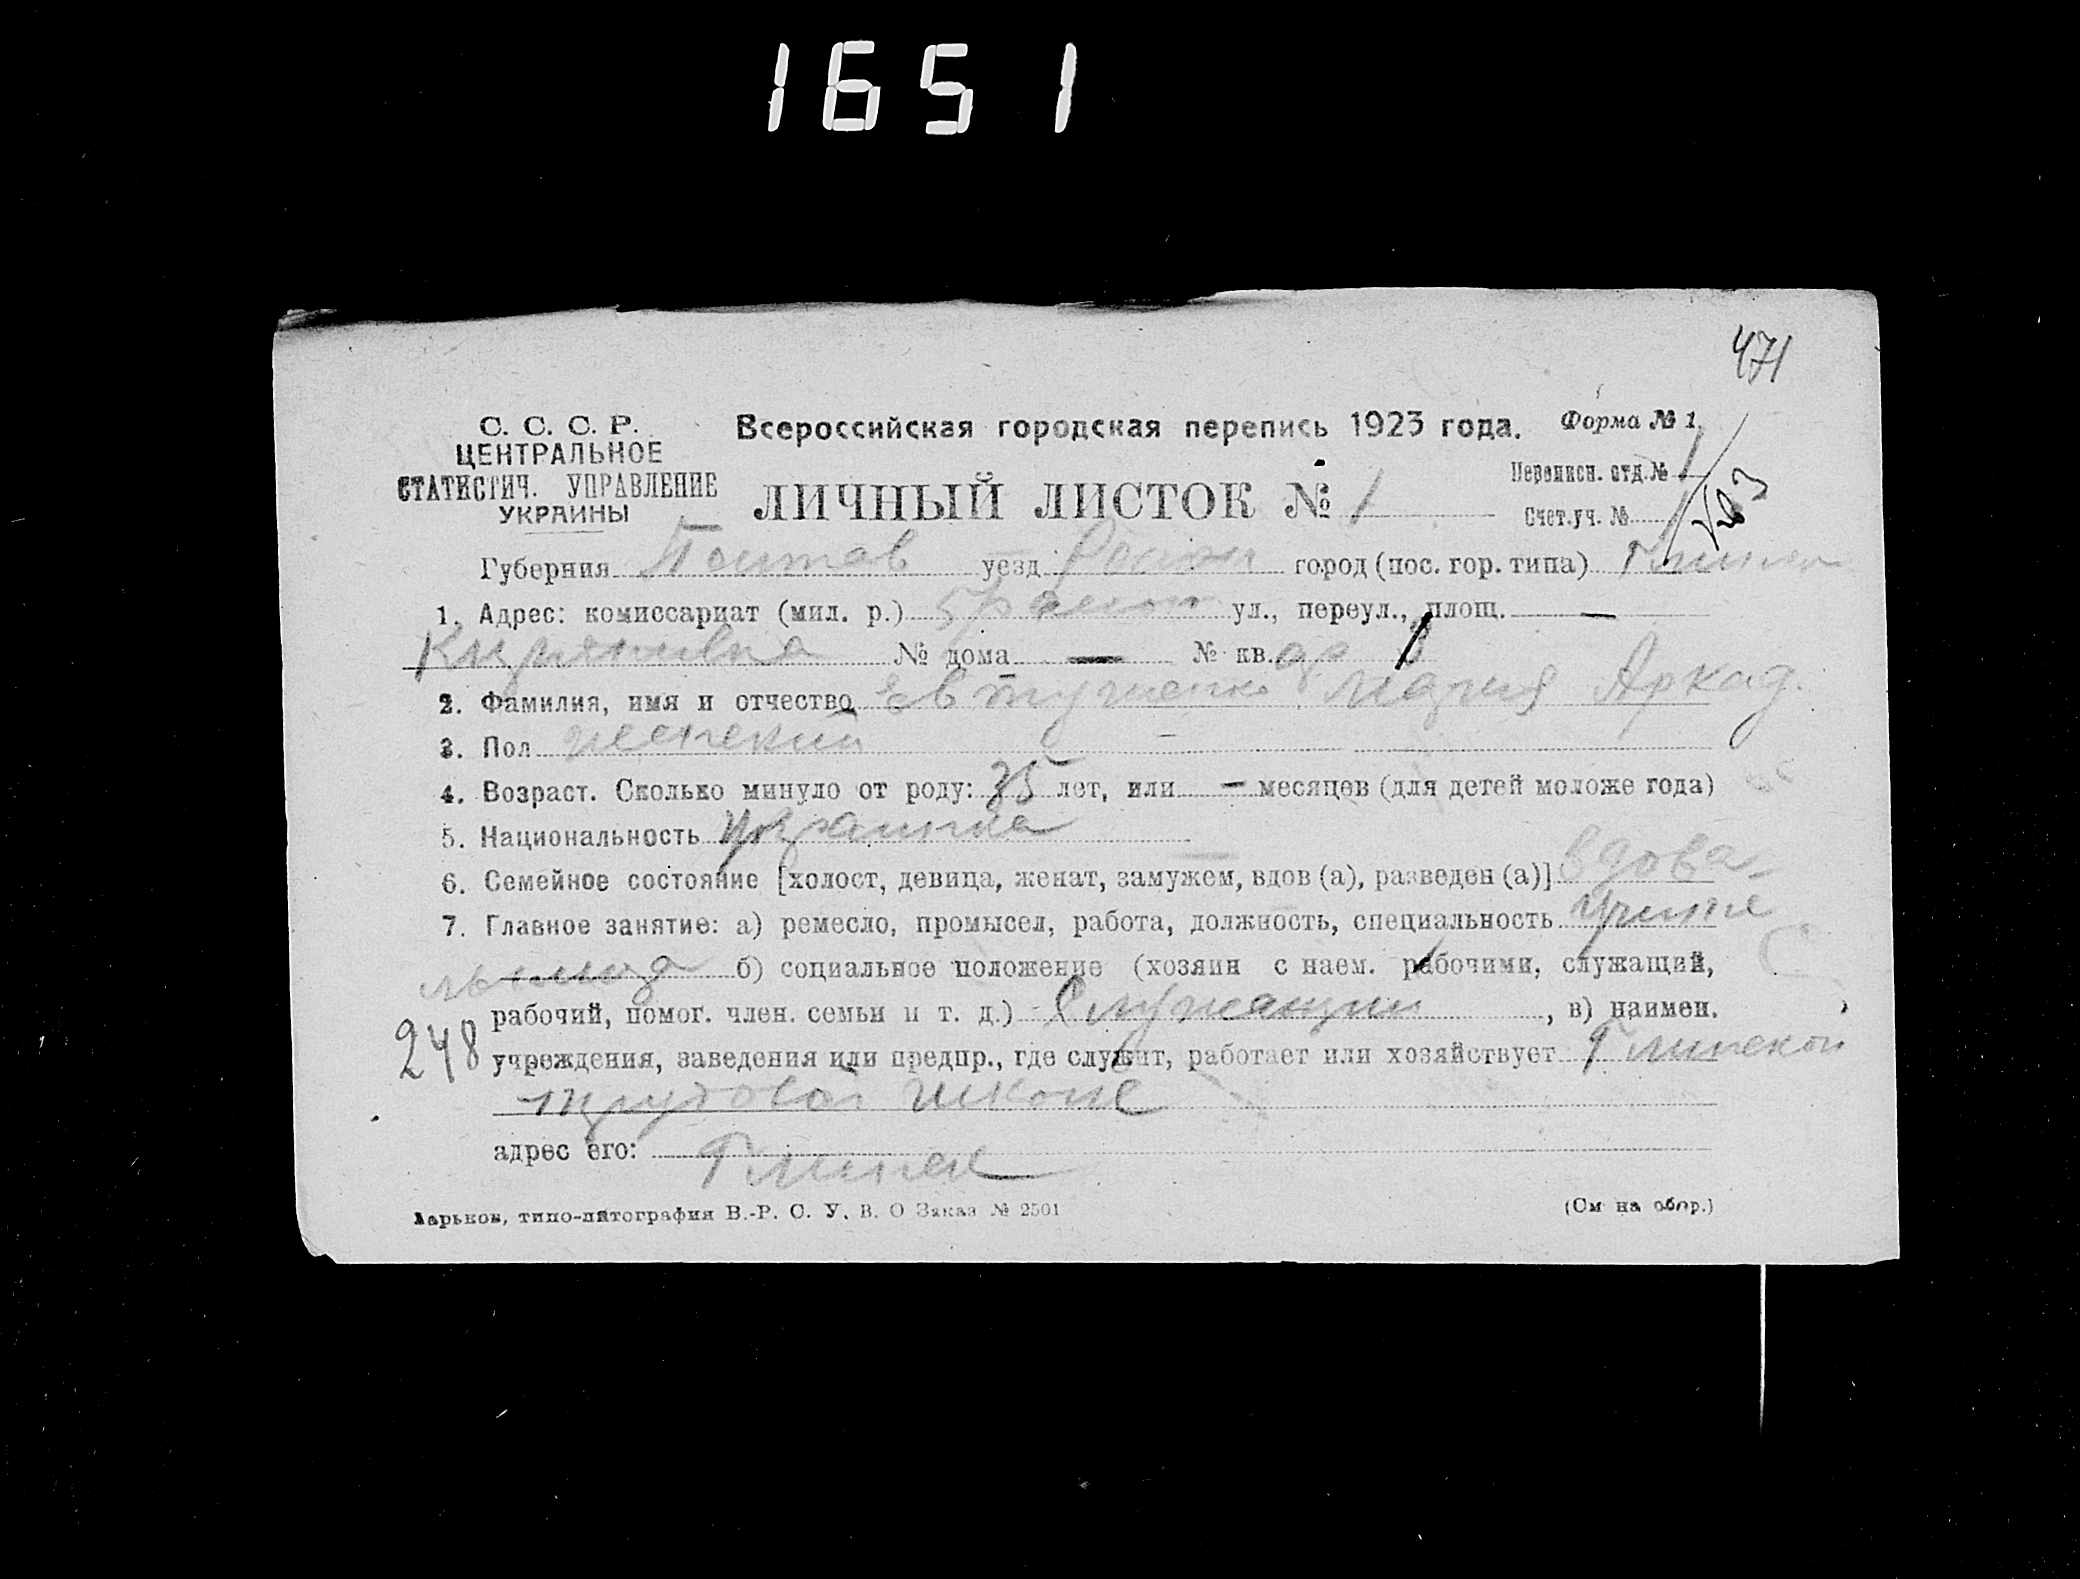 1651
471
С. С. С. Р.
ЦЕНТРАЛЬНОЕ
СТАТИСТИЧ. УПРАВЛЕНИЕ
УКРАИНЫ
Всероссийская городская перепись 1923 года. Форма № 1.
ЛИЧНЫЙ ЛИСТОК № 1
Переписн. отд. № 1
Счет. уч. №
Губерния Полтав уезд город (пос. гор. типа) Глинск
1. Адрес: комиссариат (мил. р.) 5 район ул., переул., площ. —
№ дома — № кв.
2. Фамилия, имя и отчество Евтушенко Мария Аркад.
3. Пол женский
4. Возраст. Сколько минуло от роду: 35 лет, или — месяцев (для детей моложе года)
5. Национальность Украинка
6. Семейное состояние [холост, девица, женат, замужем, вдов (а), разведен (а)] вдова
7. Главное занятие: а) ремесло, промысел, работа, должность, специальность Учите
льница б) социальное положение (хозяин с наем. рабочими, служащий,
рабочий, помог. член. семьи и т. д.) Служащий, в) наимен.
248 учреждения, заведения или предпр., где служит, работает или хозяйствует Глинской
трудовой школе
адрес его: Глинск
Харьков, типо-литография В.-Р. С. У. В. О Заказ № 2501
(См на обор.)